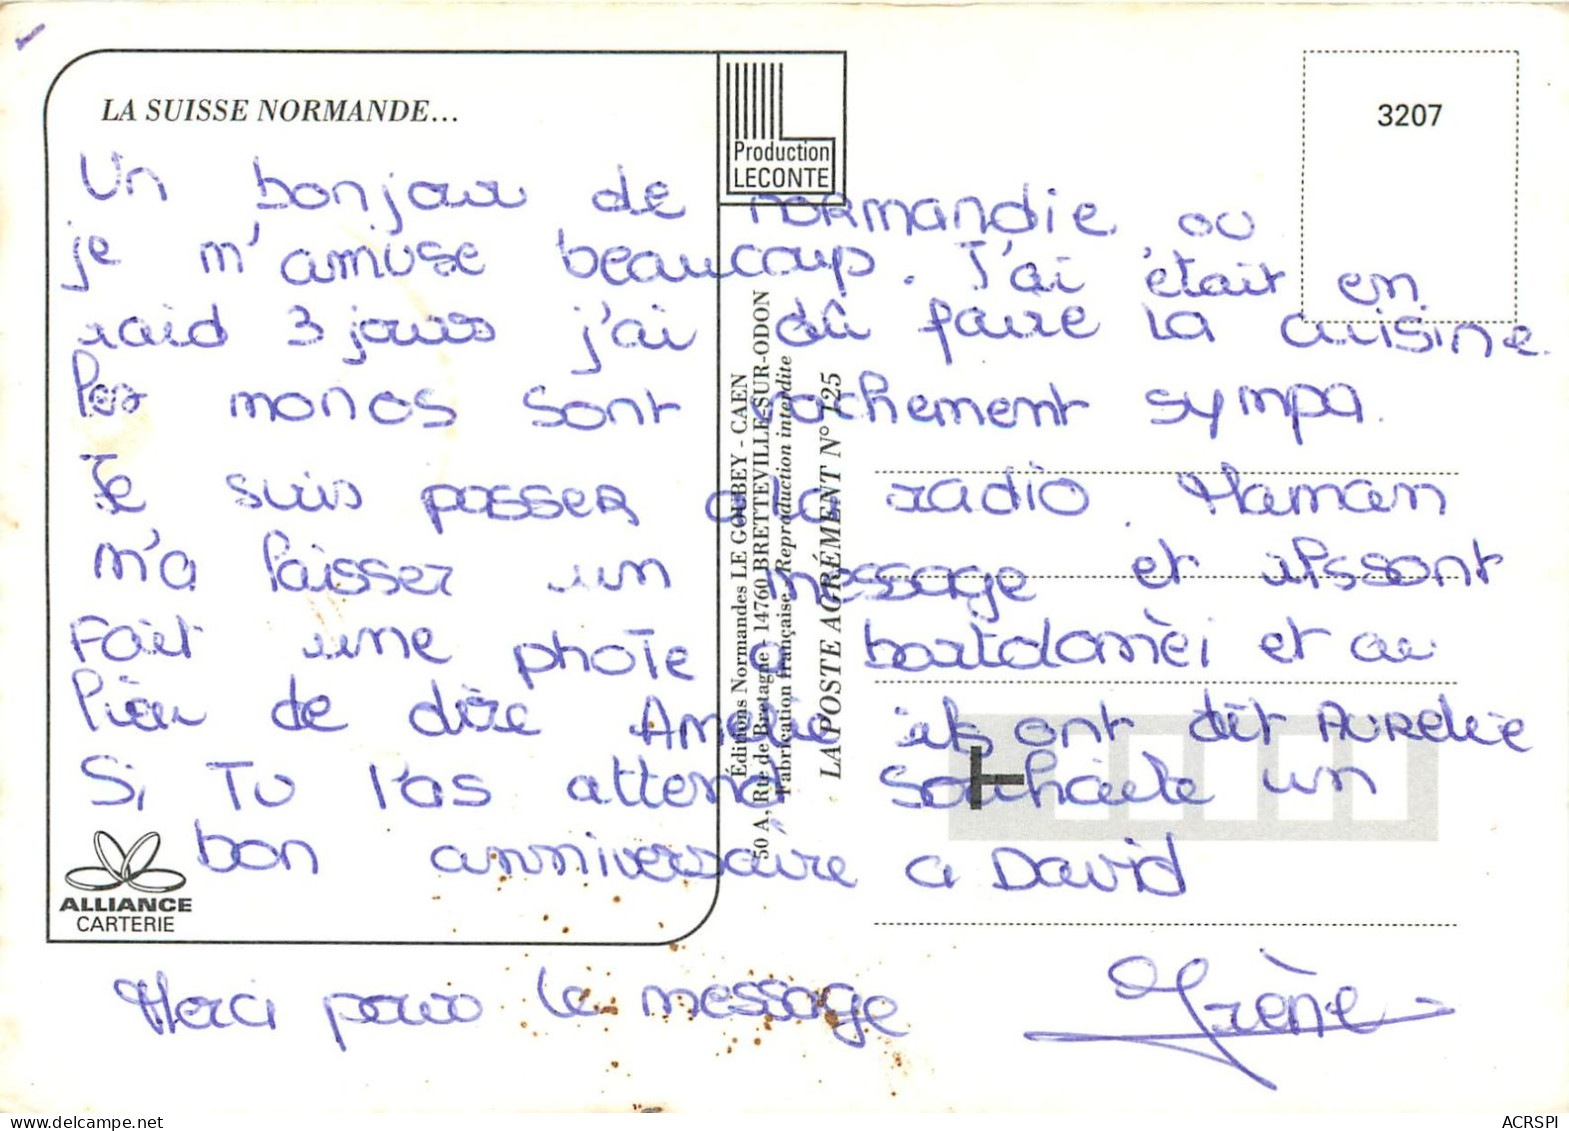 LA SUISSE NORMANDE...
Production
LECONTE
3207
Un bonjour de normandie ou
je m'amuse beaucoup. J'ai était en
raid 3 jours j'ai dû faire la cuisine.
les monos sont vachement sympa.
Je suis passer a la radio. Maman
m'a laisser un message et ils sont
fait une photе a bartolomèi et au
lieu de dire Amelie ils ont dit Aurelie
Si tu l'as attend souhaite un
bon anniversaire a David
Merci pour le message
Irène
Éditions Normandes LE GOUBEY - CAEN
50 A, Rue de Bretagne - 14760 BRETTEVILLE-SUR-ODON
Fabrication française - Reproduction interdite
LA POSTE AGRÉMENT N° 125
ALLIANCE
CARTERIE
ACRSPI